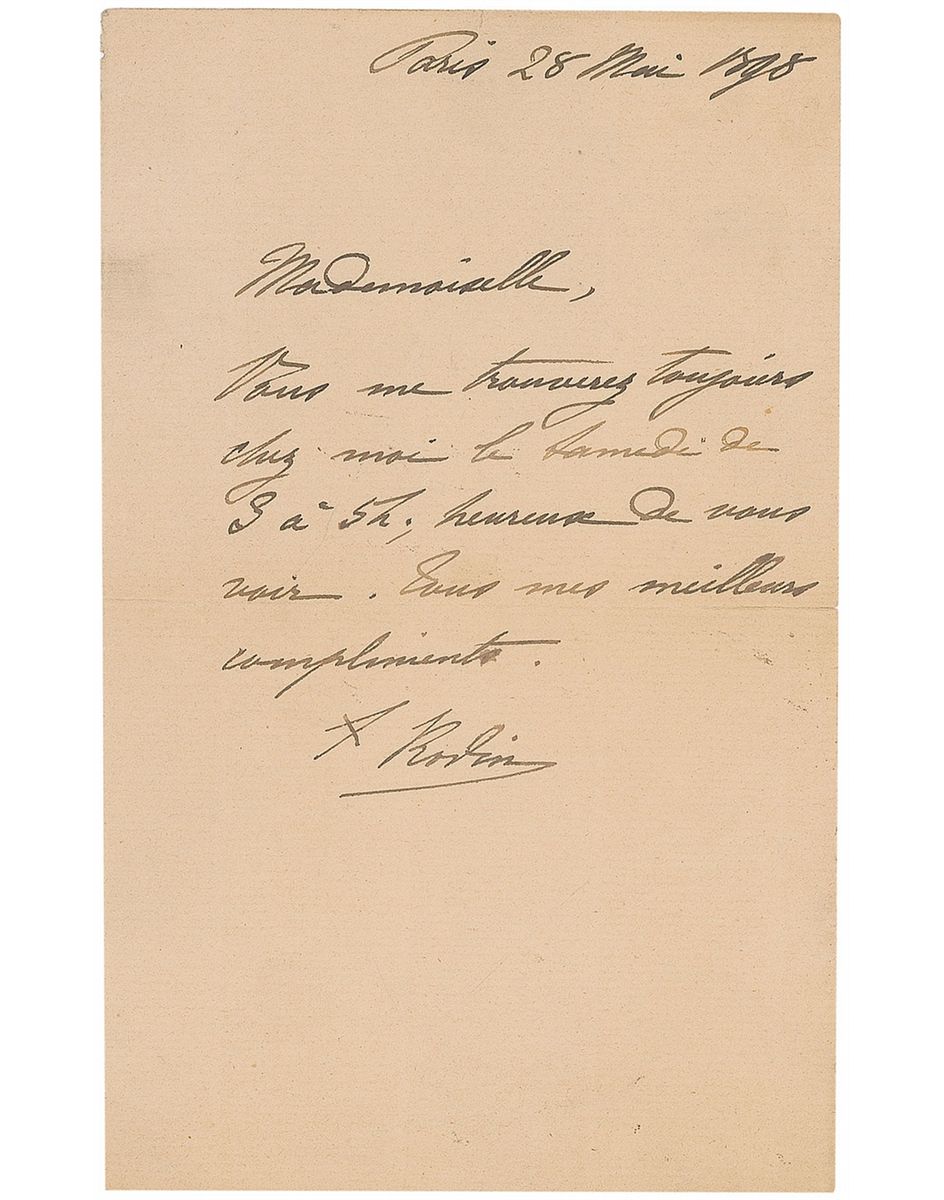 Paris 28 Mai 1898
Mademoiselle,
Vous me trouverez toujours
chez moi le samedi de
3 à 5h., heureux de vous
voir. Tous mes meilleurs
compliments.
A Rodin